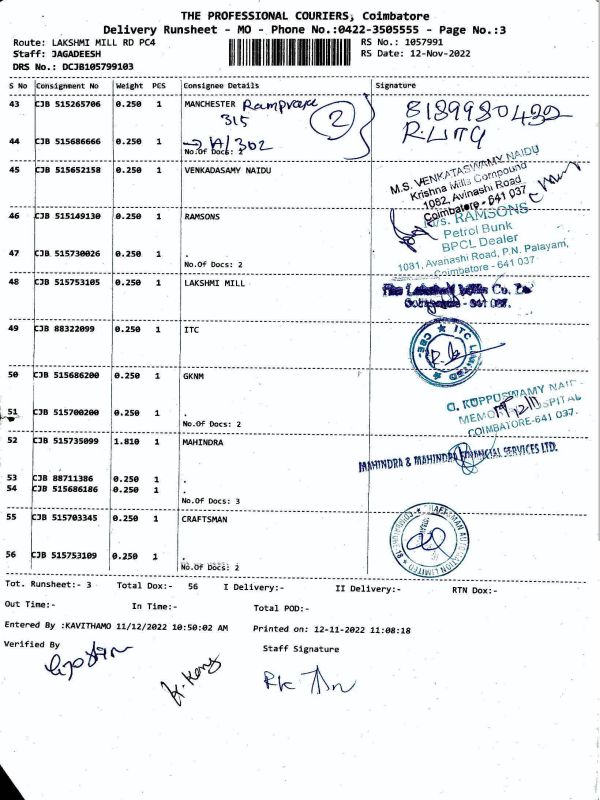 THE PROFESSIONAL COURIERS, Coimbatore
Delivery Runsheet - MO - Phone No.:0422-3505555 - Page No.:3
Route: LAKSHMI MILL RD PC4
RS No.: 1057991
Staff: JAGADEESH
RS Date: 12-Nov-2022
DRS No.: DCJB105799103
S No Consignment No Weight PCS Consignee Details Signature
43 CJB 515265706 0.250 1 MANCHESTER
315
2
8189980432
44 CJB 515686666 0.250 1 A/302
No.Of Docs: 2
45 CJB 515652158 0.250 1 VENKADASAMY NAIDU
M.S. VENKATASWAMY NAIDU
Krishna Mills Compound
1082, Avinashi Road
Coimbatore - 641 037
46 CJB 515149130 0.250 1 RAMSONS
M/s. RAMSONS
Petrol Bunk
BPCL Dealer
1081, Avanashi Road, P.N. Palayam,
Coimbatore - 641 037
47 CJB 515730026 0.250 1 .
No.Of Docs: 2
48 CJB 515753105 0.250 1 LAKSHMI MILL
49 CJB 88322099 0.250 1 ITC
ITC LIMITED CBE-
50 CJB 515686200 0.250 1 GKNM
G. KUPPUSWAMY
COIMBATORE-641 037.
51 CJB 515700200 0.250 1 .
No.Of Docs: 2
52 CJB 515735099 1.810 1 MAHINDRA
MAHINDRA & MAHINDRA FINANCIAL SERVICES LTD.
53 CJB 88711386 0.250 1 .
54 CJB 515686186 0.250 1 .
No.Of Docs: 3
55 CJB 515703345 0.250 1 CRAFTSMAN
56 CJB 515753109 0.250 1 .
No.Of Docs: 2
Tot. Runsheet:- 3 Total Dox:- 56 I Delivery:- II Delivery:- RTN Dox:-
Out Time:- In Time:- Total POD:-
Entered By :KAVITHAMO 11/12/2022 10:50:02 AM Printed on: 12-11-2022 11:08:18
Verified By Staff Signature